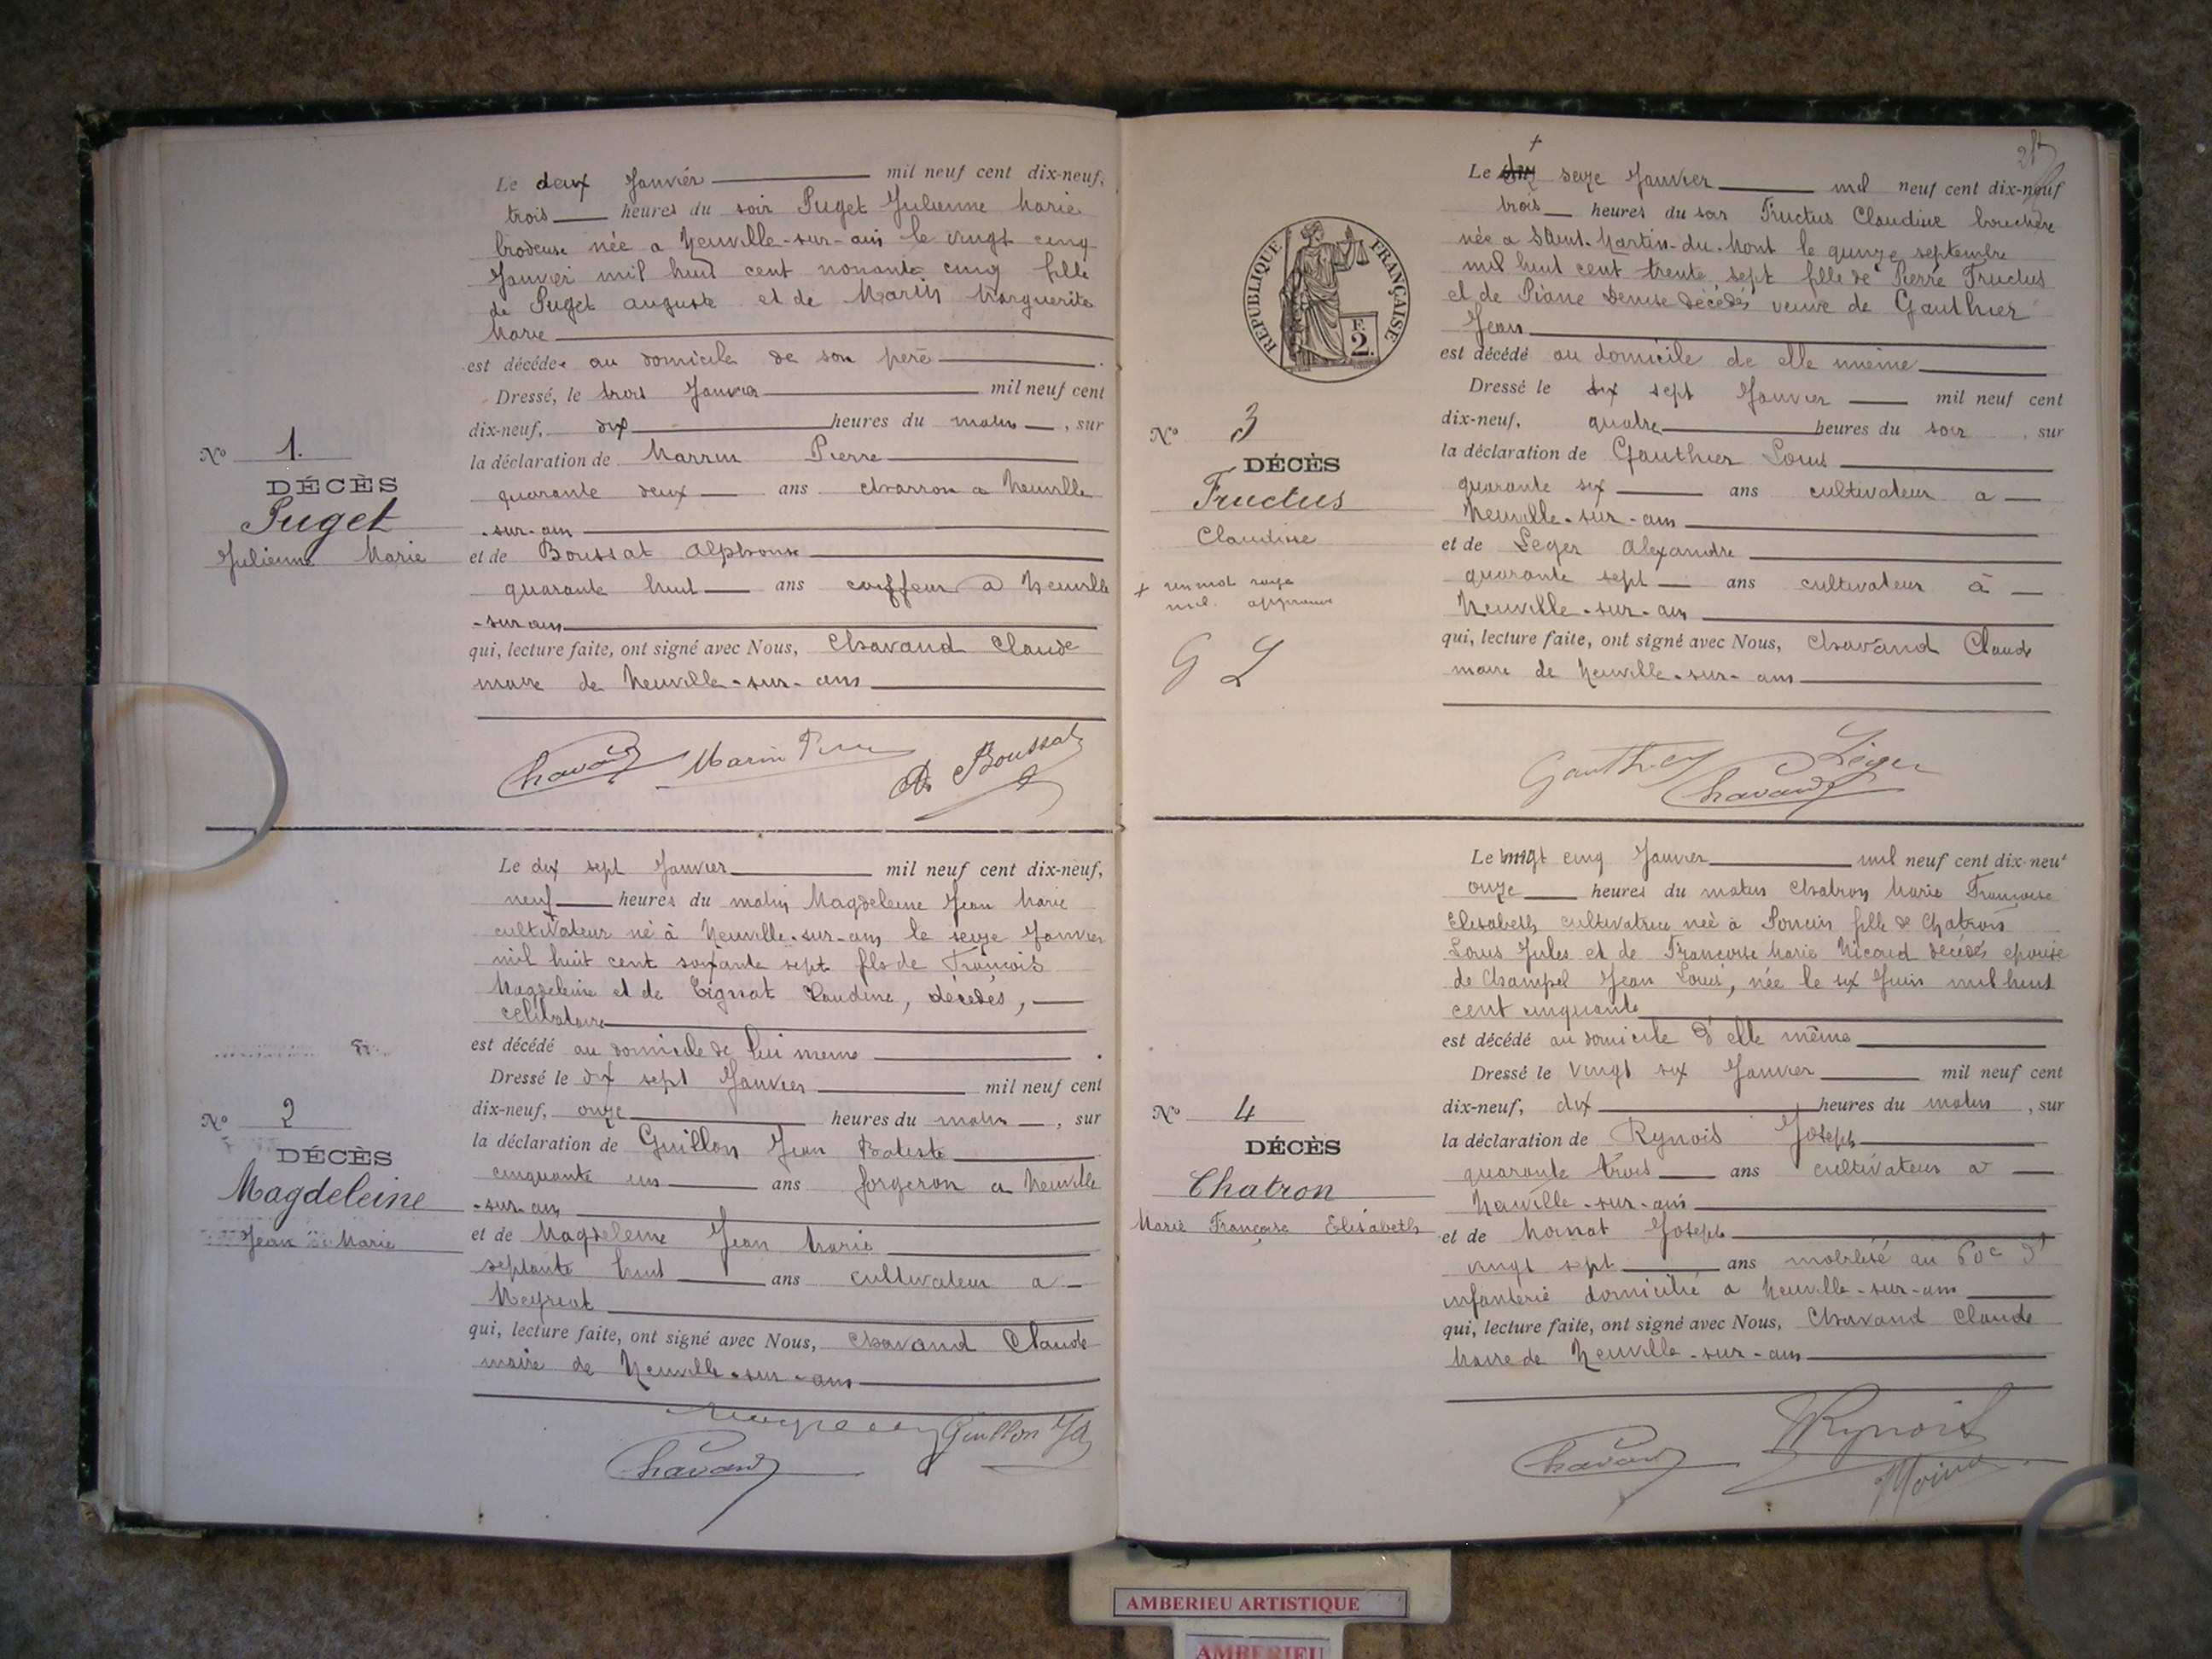 Le deux Janvier mil neuf cent dix-neuf,
trois heures du soir Puget Julienne Marie
brodeuse née a Neuville-sur-ain le vingt cinq
Janvier mil huit cent nonante cinq fille
de Puget auguste et de Marin Marguerite
Marie
est décédée au domicile de son père
Dressé, le trois Janvier mil neuf cent
dix-neuf, dix heures du matin, sur
la déclaration de Marrin Pierre
quarante deux ans charron a Neuville
-sur-ain
et de Boussat Alphonse
quarante huit ans coiffeur a Neuville
-sur ain
qui, lecture faite, ont signé avec Nous, Chavand Claude
maire de Neuville-sur-ain
No 1.
DÉCÈS
Puget
Julienne Marie
Chavand Marin Pierre A. Boussat
Le dix sept Janvier mil neuf cent dix-neuf,
neuf heures du matin Magdeleine Jean Marie
cultivateur né à Neuville-sur-ain le seize Janvier
mil huit cent soixante sept fils de François
Magdeleine et de Tignat Claudine, décédés,
célibataire
est décédé au domicile de lui meme
Dressé le dix sept Janvier mil neuf cent
dix-neuf, onze heures du matin, sur
la déclaration de Guillon Jean Batiste
cinquante un ans forgeron a Neuville
-sur-ain
et de Magdeleine Jean Marie
septante huit ans cultivateur a
Meyriat
qui, lecture faite, ont signé avec Nous, Chavand Claude
maire de Neuville-sur-ain
No 2
DÉCÈS
Magdeleine
Jean Marie
Guillon JB
Chavand
Le dix seize Janvier mil neuf cent dix-neuf
trois heures du soir Fructus Claudine bouchère
née a Saint-Martin-du-Mont le quinze septembre
mil huit cent trente sept fille de Pierre Fructus
et de Piane Denise décédés veuve de Gauthier
Jean
est décédé au domicile de elle même
Dressé le dix sept Janvier mil neuf cent
dix-neuf, quatre heures du soir, sur
la déclaration de Gauthier Louis
quarante six ans cultivateur a
Neuville-sur-ain
et de Leger Alexandre
quarante sept ans cultivateur à
Neuville-sur-ain
qui, lecture faite, ont signé avec Nous, Chavand Claude
maire de Neuville-sur-ain
RÉPUBLIQUE FRANÇAISE
F. 2.
No 3
DÉCÈS
Fructus
Claudine
+ un mot rayé
nul approuvé
G L
Gauthier Léger
Chavand
Le vingt cinq Janvier mil neuf cent dix-neuf
onze heures du matin Chatron Marie Françoise
Elisabeth cultivatrice née à Poncin fille de Chatron
Louis Jules et de Françoise Marie Nicoud décédés epouse
de Champel Jean Louis, née le six Juin mil huit
cent cinquante
est décédé au domicile d'elle même
Dressé le vingt six Janvier mil neuf cent
dix-neuf, dix heures du matin, sur
la déclaration de Rynois Joseph
quarante trois ans cultivateur a
Neuville-sur-ain
et de Moinat Joseph
vingt sept ans mobilisé au 60e d'
infanterie domicilié a Neuville-sur-ain
qui, lecture faite, ont signé avec Nous, Chavand Claude
Maire de Neuville-sur-ain
No 4
DÉCÈS
Chatron
Marie Françoise Elisabeth
Chavand Rynois
AMBERIEU ARTISTIQUE
AMBERIEU